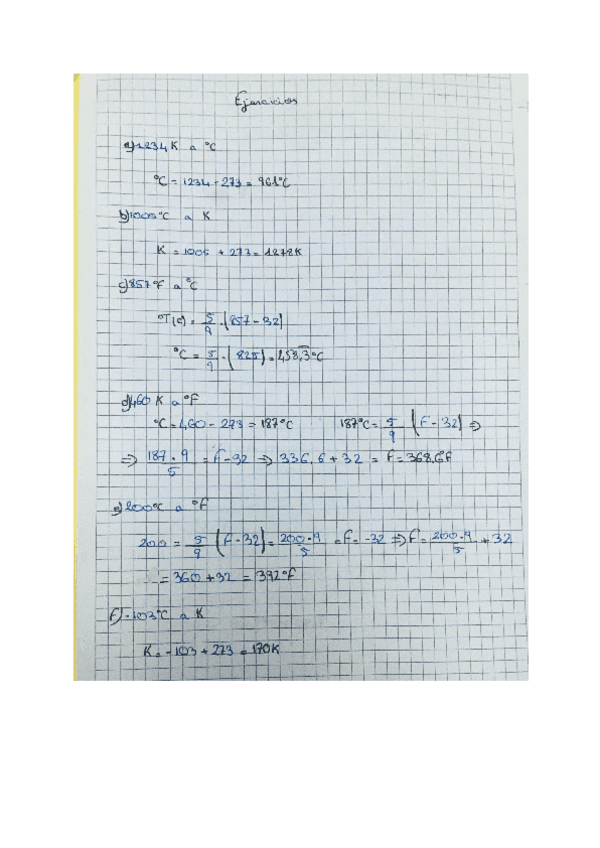 Ejercicios
a) 1234 K a °C
°C = 1234 - 273 = 961°C
b) 1005 °C a K
K = 1005 + 273 = 1278K
c) 857 °F a °C
°T(c) = 5/9 · (857 - 32)
°C = 5/9 · (825) = 458,3 °C
d) 460 K a °F
°C = 460 - 273 = 187°C 187°C = 5/9 (F - 32) ⇒
⇒ 187 · 9 / 5 = F - 32 ⇒ 336,6 + 32 = F = 368,6F
e) 200°C a °F
200 = 5/9 (F - 32) = 200 · 9 / 5 = F = -32 ⇒ F = 200 · 9 / 5 + 32
= 360 + 32 = 392 °F
F) -103°C a K
K = -103 + 273 = 170K